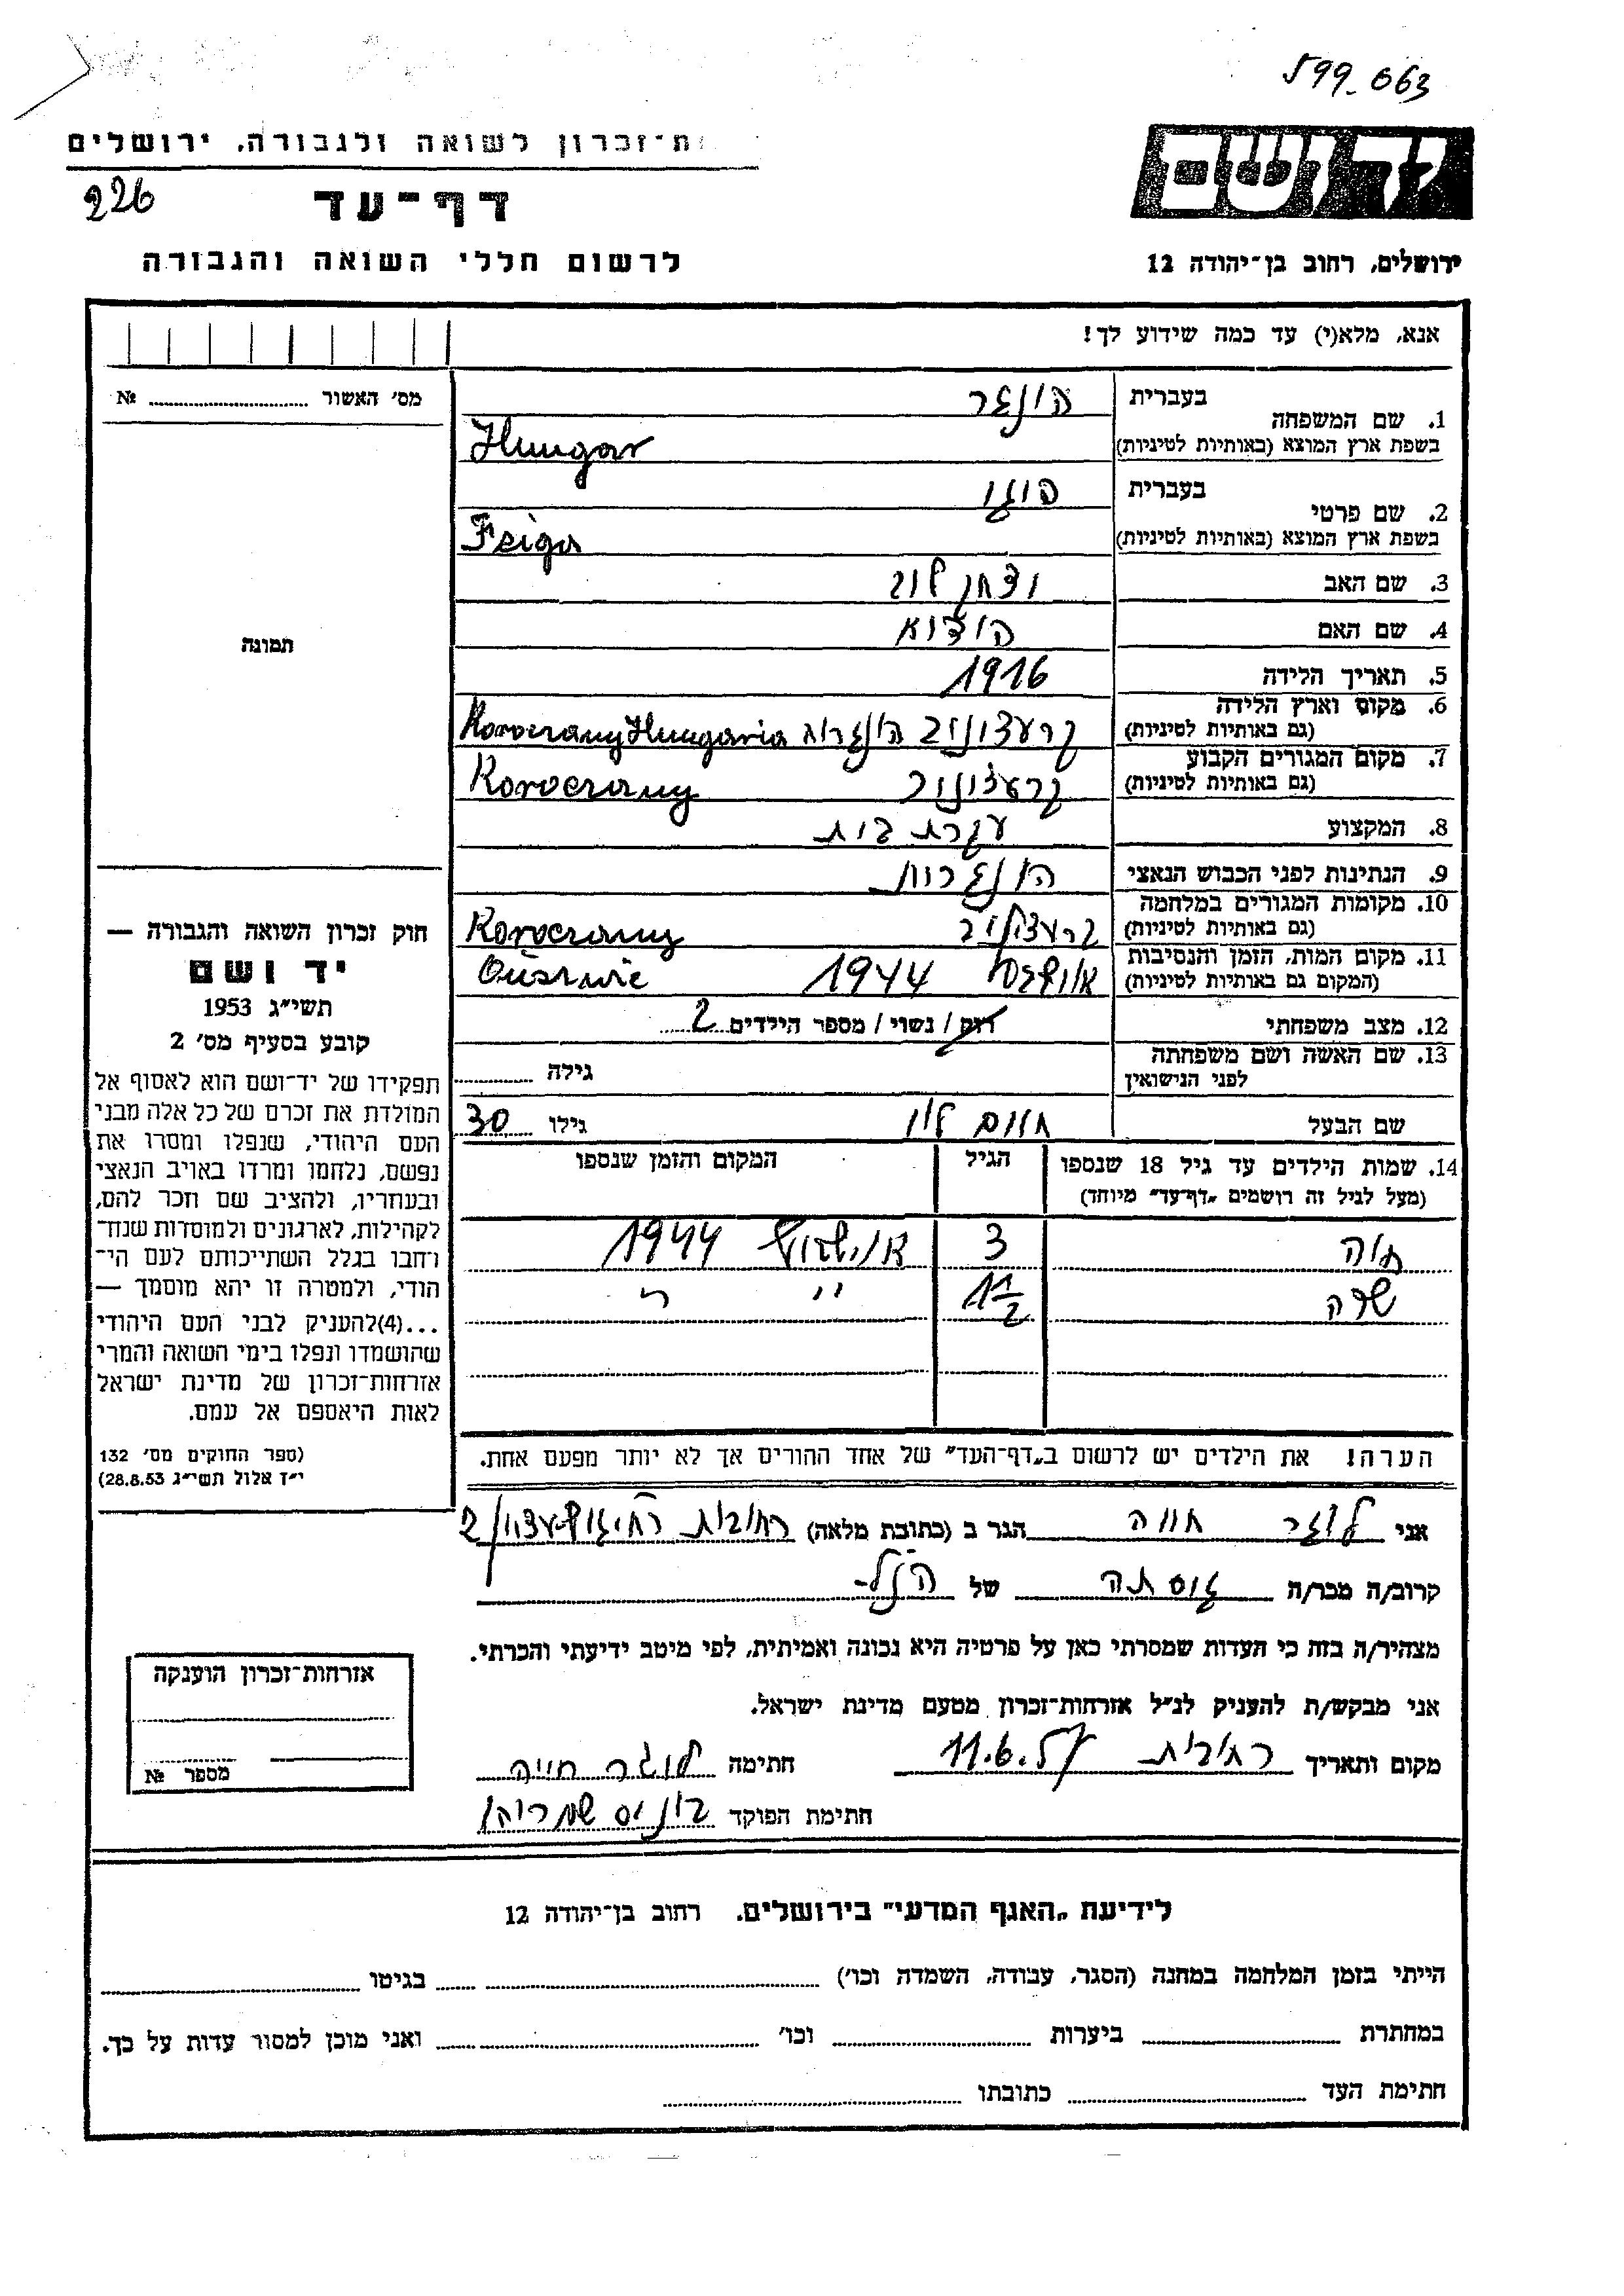 599_063
ת־זכרון לשואה ולגבורה. ירושלים
226
דף־עד
לרשום חללי השואה והגבורה
יד ושם
ירושלים, רחוב בן־יהודה 12
אנא, מלא(י) עד כמה שידוע לך!
מס׳ האשור № 
תמונה
1. שם המשפחה בעברית הונגר
בשפת ארץ המוצא (באותיות לטיניות) Hungar
2. שם פרטי בעברית פוגו
בשפת ארץ המוצא (באותיות לטיניות) Feiga
3. שם האב
4. שם האם
5. תאריך הלידה 1916
6. מקום וארץ הלידה
(גם באותיות לטיניות) Hungaria
7. מקום המגורים הקבוע
(גם באותיות לטיניות)
8. המקצוע עקרת בית
9. הנתינות לפני הכבוש הנאצי
10. מקומות המגורים במלחמה
(גם באותיות לטיניות)
11. מקום המות, הזמן והנסיבות
(המקום גם באותיות לטיניות) 1944
12. מצב משפחתי רוק / נשוי / מספר הילדים 2
13. שם האשה ושם משפחתה
לפני הנישואין גילה
שם הבעל חיים גילו 30
14. שמות הילדים עד גיל 18 שנספו
(מעל לגיל זה רושמים „דף־עד״ מיוחד)
הגיל
המקום והזמן שנספו
חוה 3 1944
שרה 1½ " "
הערה! את הילדים יש לרשום ב„דף־העד״ של אחד ההורים אך לא יותר מפעם אחת.
חוק זכרון השואה והגבורה —
יד ושם
תשי״ג 1953
קובע בסעיף מס׳ 2
תפקידו של יד־ושם הוא לאסוף אל
המולדת את זכרם של כל אלה מבני
העם היהודי, שנפלו ומסרו את
נפשם, נלחמו ומרדו באויב הנאצי
ובעוזריו, ולהציב שם וזכר להם,
לקהילות, לארגונים ולמוסדות שנח־
רבו בגלל השתייכותם לעם הי־
הודי, ולמטרה זו יהא מוסמך —
...(4)להעניק לבני העם היהודי
שהושמדו ונפלו בימי השואה והמרי
אזרחות־זכרון של מדינת ישראל
לאות היאספם אל עמם.
(ספר החוקים מס׳ 132
י״ז אלול תשי״ג 28.8.53)
אני לוגר חויה הגר ב (כתובת מלאה) רחובות
קרוב/ה מכר/ה גיסתה של הנ״ל
מצהיר/ה בזה כי העדות שמסרתי כאן על פרטיה היא נכונה ואמיתית, לפי מיטב ידיעתי והכרתי.
אני מבקש/ת להעניק לנ״ל אזרחות־זכרון מטעם מדינת ישראל.
מקום ותאריך רחובות 11.6.57 חתימה לוגר חייה
חתימת הפוקד
אזרחות־זכרון הוענקה
מספר №
לידיעת „האגף המדעי״ בירושלים. רחוב בן־יהודה 12
הייתי בזמן המלחמה במחנה (הסגר, עבודה, השמדה וכו׳) בגיטו
במחתרת ביערות וכו׳ ואני מוכן למסור עדות על כך.
חתימת העד כתובתו